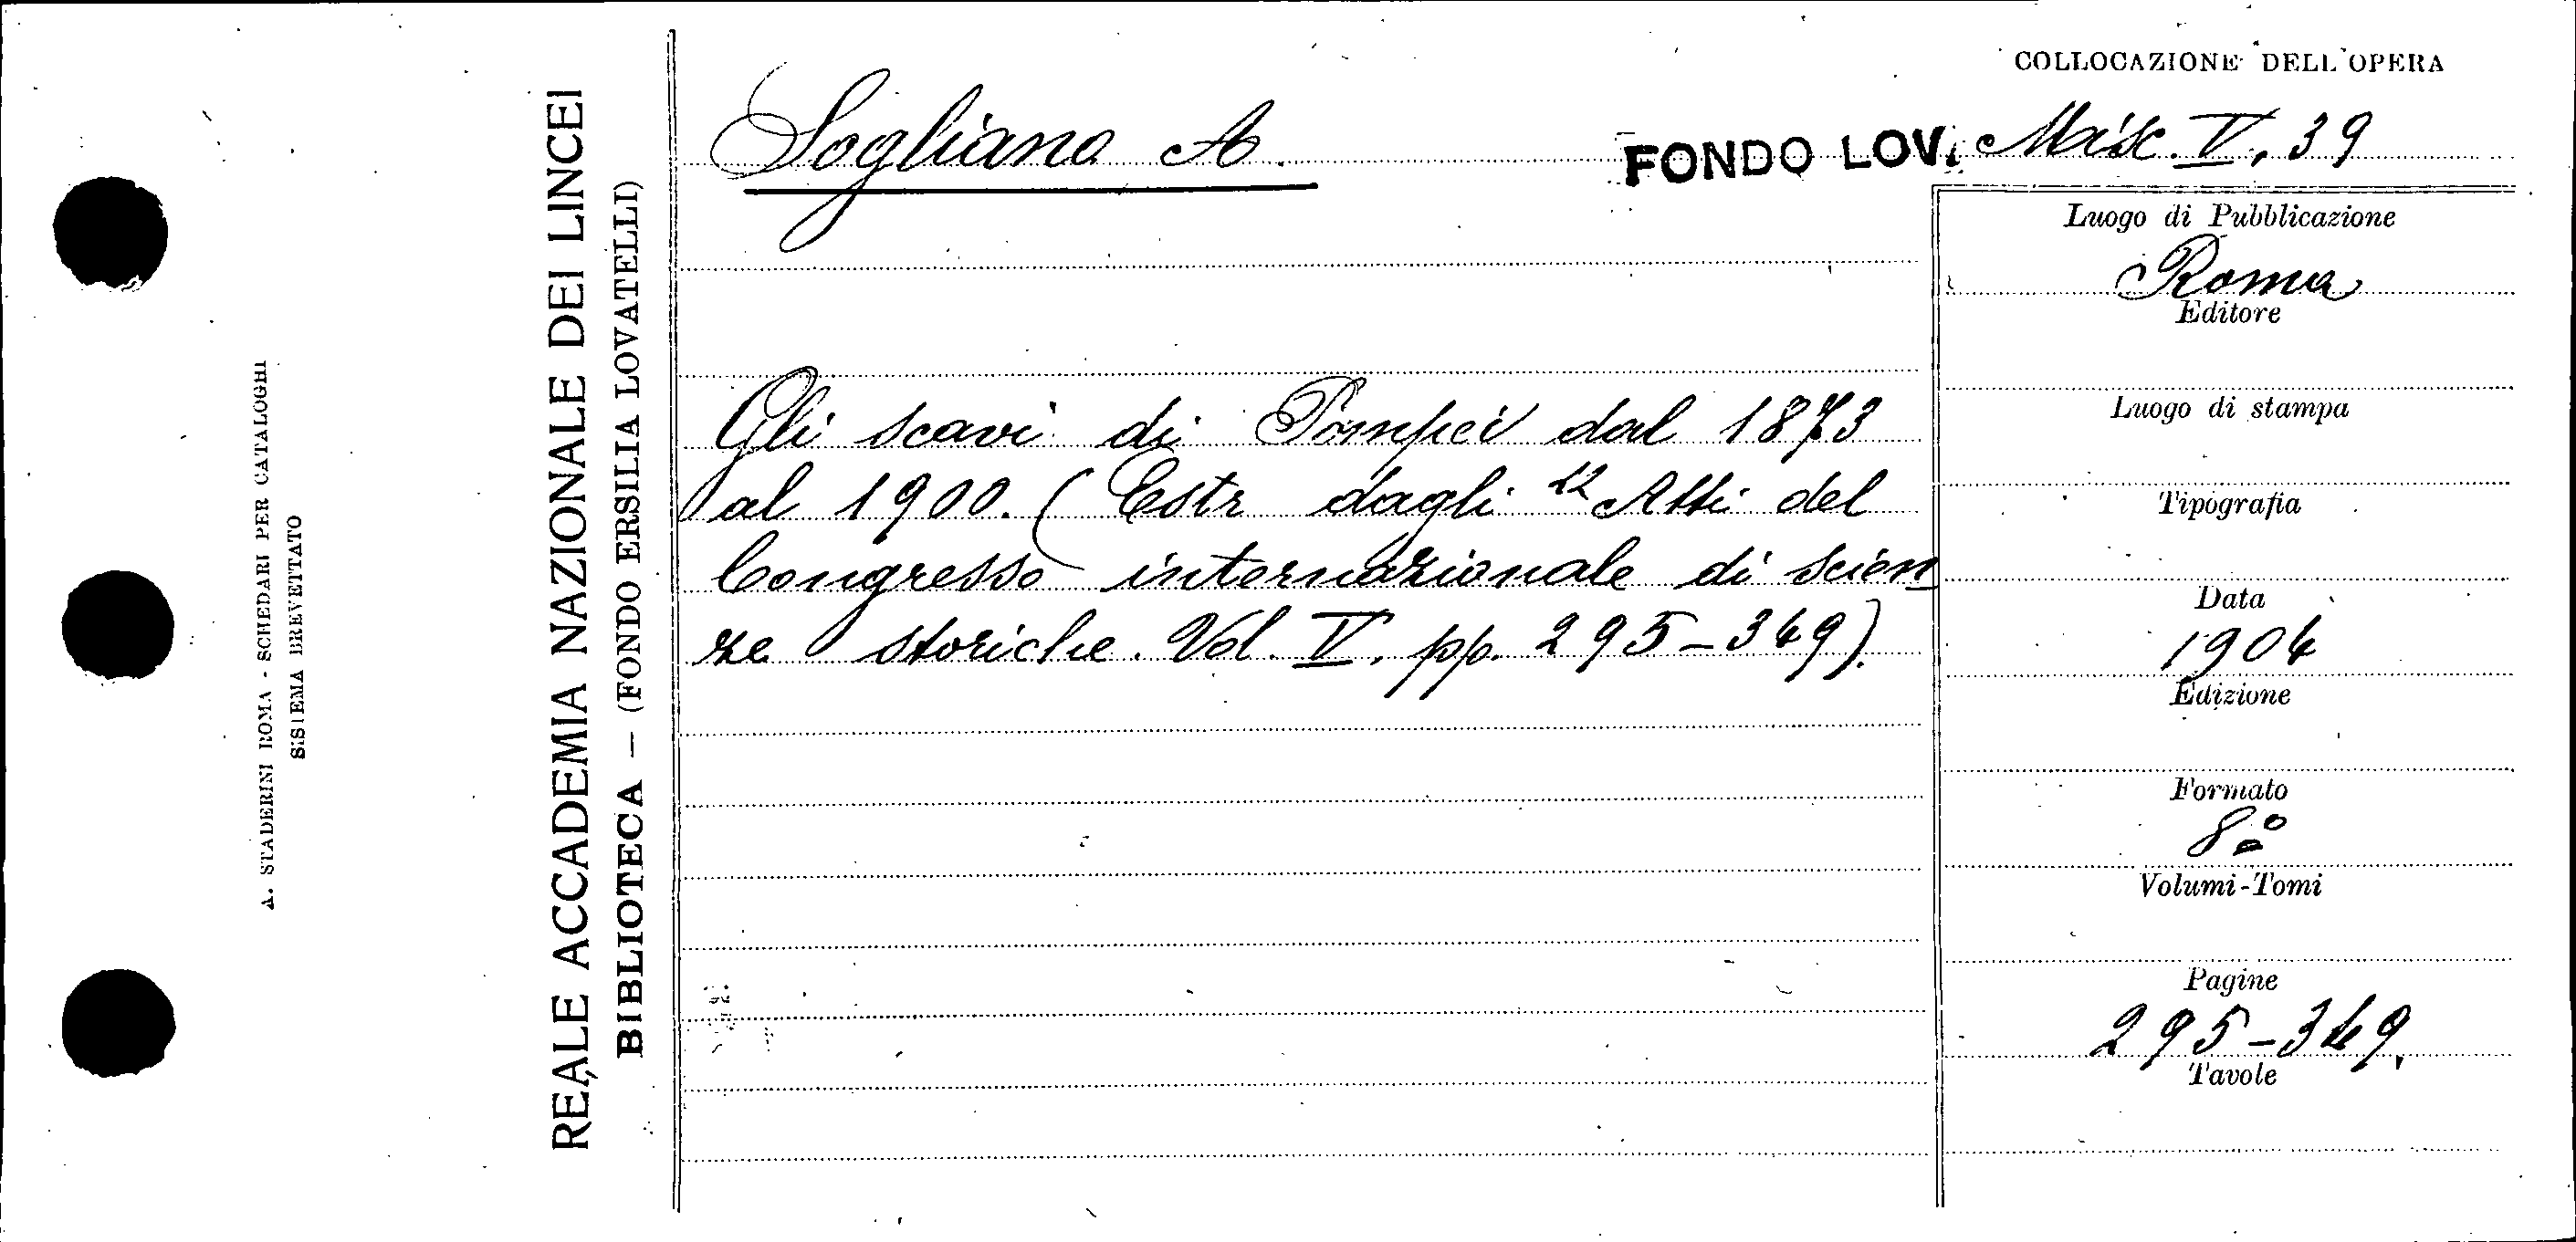 A. STADERINI ROMA - SCHEDARI PER CATALOGHI
SISTEMA BREVETTATO
REALE ACCADEMIA NAZIONALE DEI LINCEI
BIBLIOTECA — (FONDO ERSILIA LOVATELLI)
Sogliano A.
Gli scavi di Pompei dal 1873
al 1900. (Estr dagli "Atti del
Congresso internazionale di scien
ze storiche. Vol. V. pp. 295-349).
COLLOCAZIONE DELL'OPERA
FONDO LOV. Misc. V, 39
Luogo di Pubblicazione
Roma
Editore
Luogo di stampa
Tipografia
Data
1904
Edizione
Formato
8º
Volumi-Tomi
Pagine
295-349.
Tavole